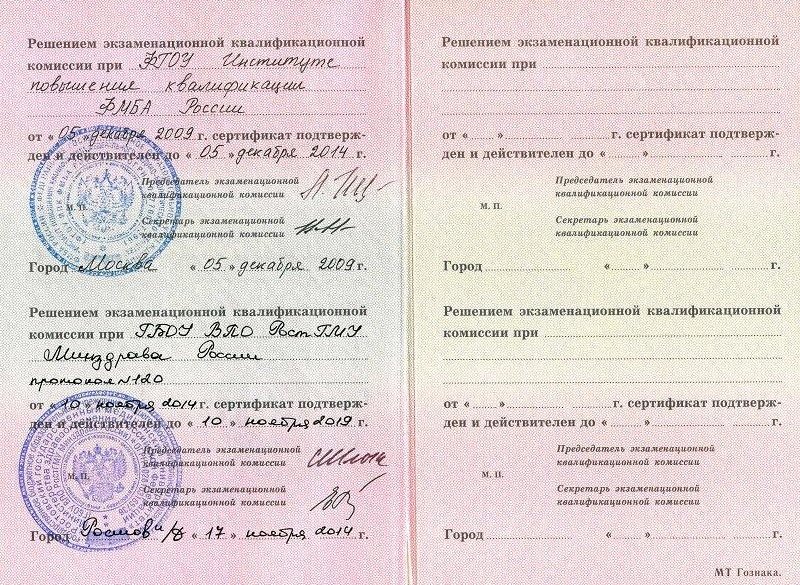 Решением экзаменационной квалификационной
комиссии при ФГОУ Институте
повышения квалификации
ФМБА России
от « 05 » декабря 2009 г. сертификат подтверж-
ден и действителен до « 05 » декабря 2014 г.
Председатель экзаменационной
квалификационной комиссии
М. П.
Секретарь экзаменационной
квалификационной комиссии
Город Москва « 05 » декабря 2009 г.
Решением экзаменационной квалификационной
комиссии при ГБОУ ВПО РостГМУ
Минздрава России
протокол №120
от « 10 » ноября 2014 г. сертификат подтверж-
ден и действителен до « 10 » ноября 2019 г.
Председатель экзаменационной
квалификационной комиссии
М. П.
Секретарь экзаменационной
квалификационной комиссии
Город Ростов н/Д « 17 » ноября 2014 г.
Решением экзаменационной квалификационной
комиссии при
от « » г. сертификат подтверж-
ден и действителен до « » г.
Председатель экзаменационной
квалификационной комиссии
М. П.
Секретарь экзаменационной
квалификационной комиссии
Город « » г.
Решением экзаменационной квалификационной
комиссии при
от « » г. сертификат подтверж-
ден и действителен до « » г.
Председатель экзаменационной
квалификационной комиссии
М. П.
Секретарь экзаменационной
квалификационной комиссии
Город « » г.
МТ Гознака.